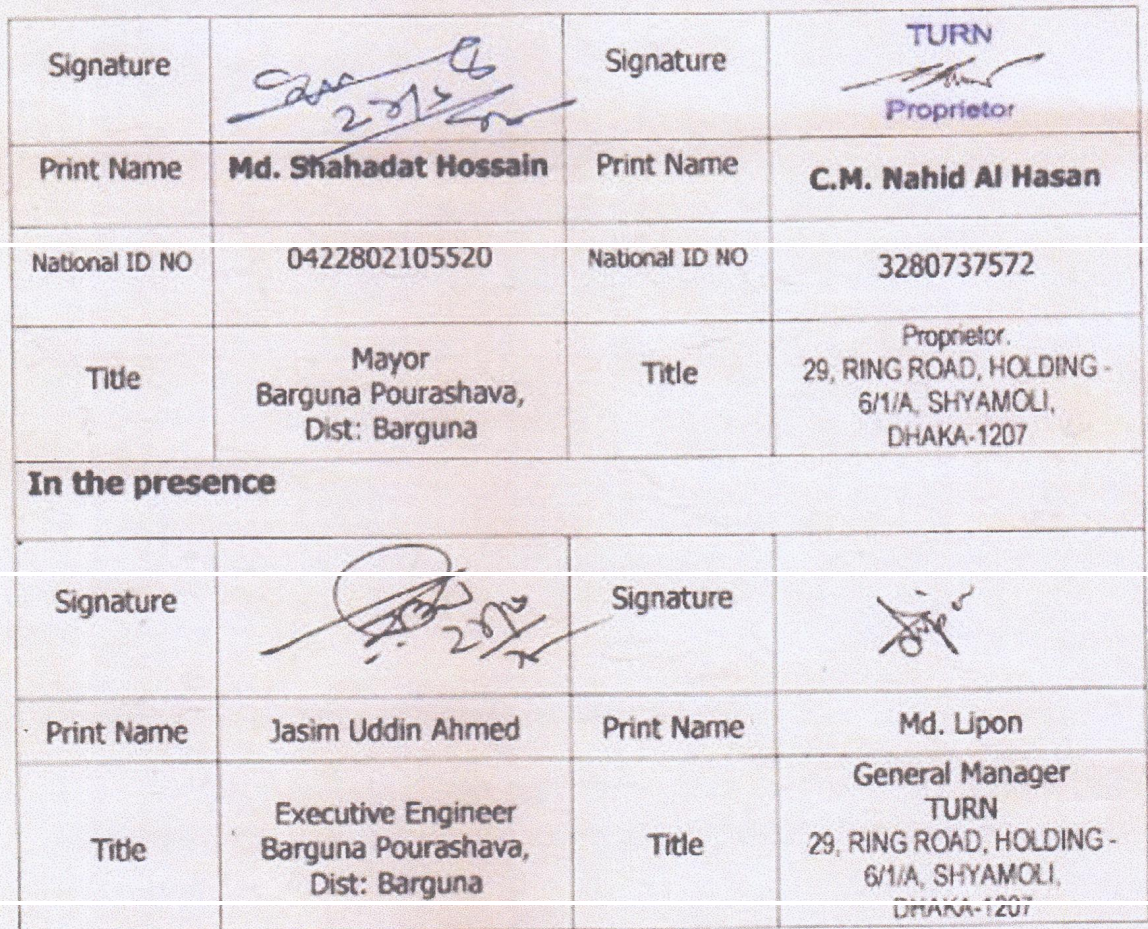 Signature
Signature
TURN
Proprietor
Print Name
Md. Shahadat Hossain
Print Name
C.M. Nahid Al Hasan
National ID NO
0422802105520
National ID NO
3280737572
Title
Mayor
Barguna Pourashava,
Dist: Barguna
Title
Proprietor.
29, RING ROAD, HOLDING -
6/1/A, SHYAMOLI,
DHAKA-1207
In the presence
Signature
Signature
Print Name
Jasim Uddin Ahmed
Print Name
Md. Lipon
Title
Executive Engineer
Barguna Pourashava,
Dist: Barguna
Title
General Manager
TURN
29, RING ROAD, HOLDING -
6/1/A, SHYAMOLI,
DHAKA-1207